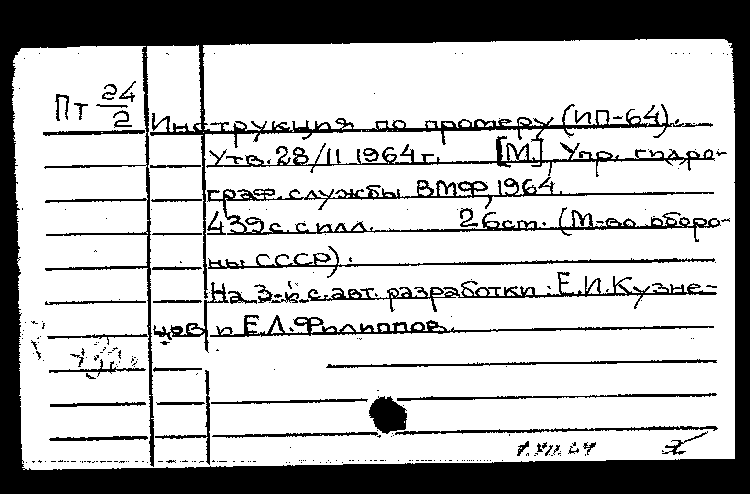 Пт 24/2
Инструкция по промеру (ИП-64).
Утв. 28/II 1964 г. [М.], Упр. гидро-
граф. службы ВМФ, 1964.
439 с. с илл. 26 см. (М-во оборо-
ны СССР).
На 3-й с. авт. разработки: Е.И. Кузне-
цов и Е.Л. Филиппов.